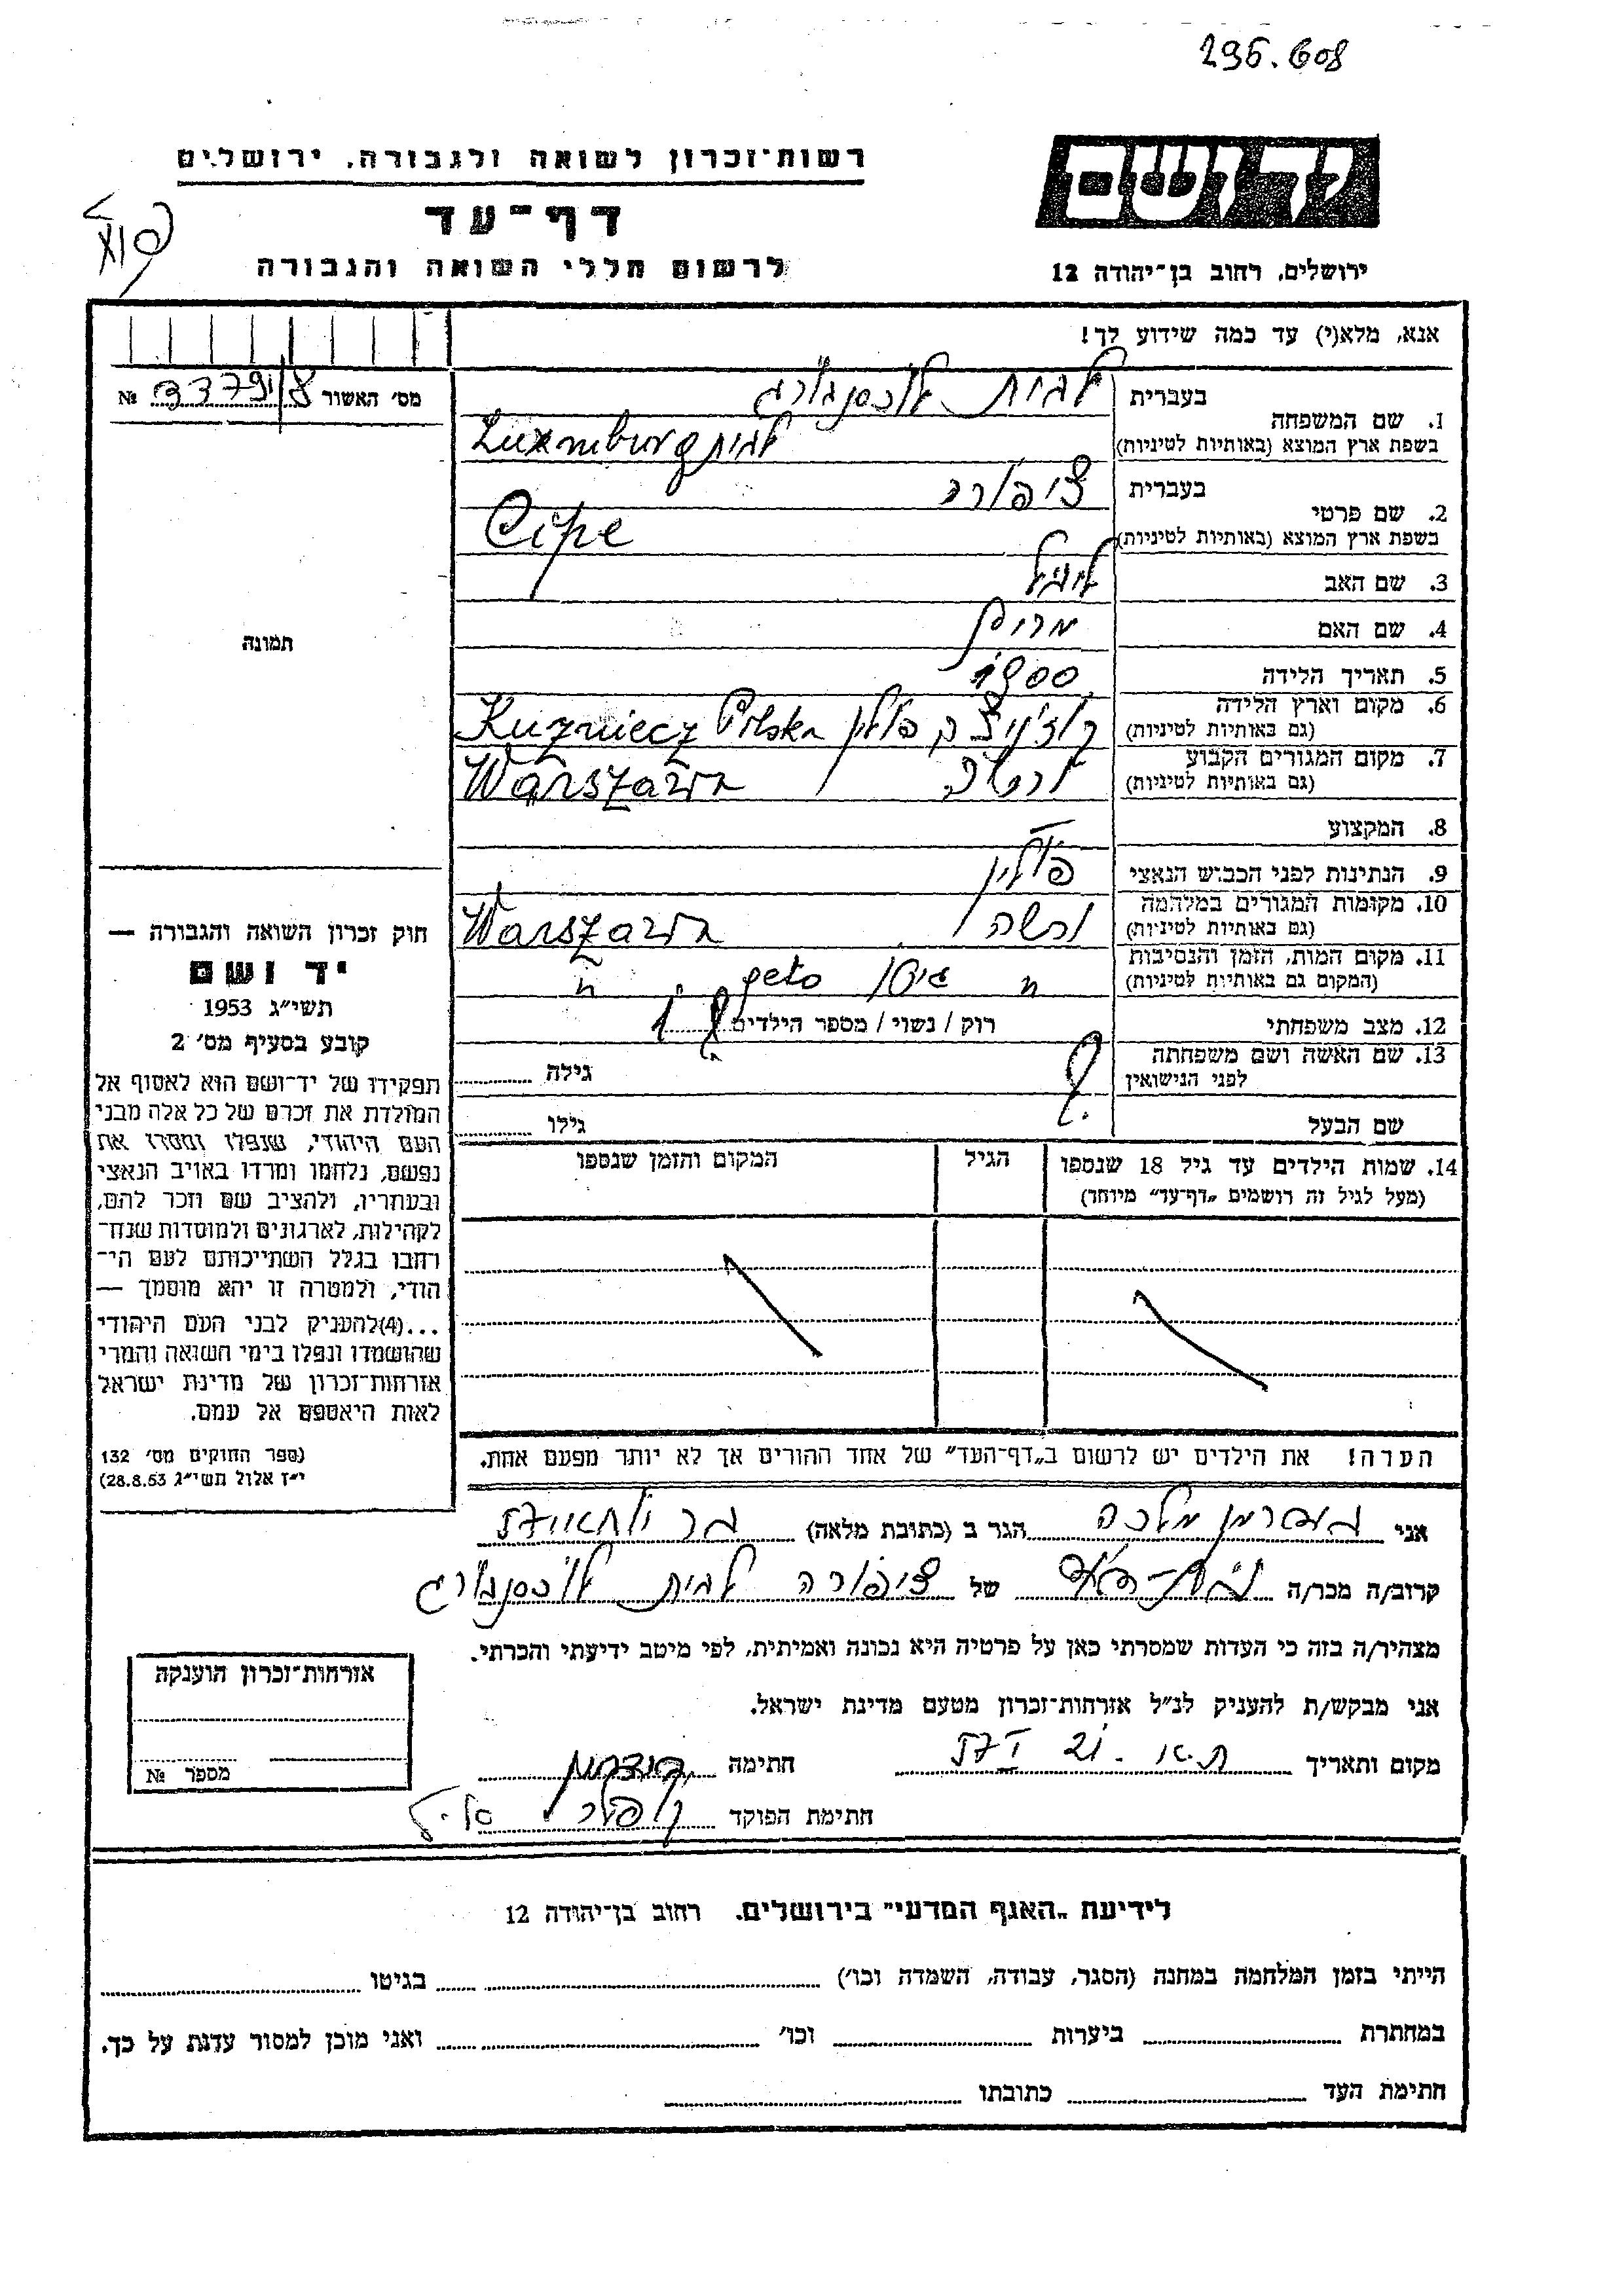 295.608
יד ושם
רשות־זכרון לשואה ולגבורה, ירושלים
דף־עד
לרשום חללי השואה והגבורה
ירושלים, רחוב בן־יהודה 12
אנא, מלא(י) עד כמה שידוע לך!
מס׳ האשור № 
1. שם המשפחה
בעברית לבית לוכסנבורג
בשפת ארץ המוצא (באותיות לטיניות) לבית Luxmburg
2. שם פרטי
בעברית ציפורה
בשפת ארץ המוצא (באותיות לטיניות) Cipe
3. שם האב
4. שם האם מרים
5. תאריך הלידה 1900
6. מקום וארץ הלידה
(גם באותיות לטיניות) פולין Kuzniecz Polska
7. מקום המגורים הקבוע
(גם באותיות לטיניות) ורשה Warszawa
8. המקצוע —
9. הנתינות לפני הכבוש הנאצי פולין
10. מקומות המגורים במלחמה
(גם באותיות לטיניות) ורשה Warszawa
11. מקום המות, הזמן והנסיבות
(המקום גם באותיות לטיניות) " גיטו geto "
12. מצב משפחתי רוק / נשוי / מספר הילדים
13. שם האשה ושם משפחתה
לפני הנישואין ? גילה
שם הבעל גילו
14. שמות הילדים עד גיל 18 שנספו
(מעל לגיל זה רושמים „דף־עד" מיוחד)
הגיל
המקום והזמן שנספו
הערה! את הילדים יש לרשום ב„דף־העד" של אחד ההורים אך לא יותר מפעם אחת.
תמונה
חוק זכרון השואה והגבורה —
יד ושם
תשי״ג 1953
קובע בסעיף מס׳ 2
תפקידו של יד־ושם הוא לאסוף אל
המולדת את זכרם של כל אלה מבני
העם היהודי, שנפלו ומסרו את
נפשם, נלחמו ומרדו באויב הנאצי
ובעוזריו, ולהציב שם וזכר להם,
לקהילות, לארגונים ולמוסדות שנח־
רבו בגלל השתייכותם לעם הי־
הודי, ולמטרה זו יהא מוסמך —
...(4)להעניק לבני העם היהודי
שהושמדו ונפלו בימי השואה והמרי
אזרחות־זכרון של מדינת ישראל
לאות היאספם אל עמם.
(ספר החוקים מס׳ 132
י״ז אלול תשי״ג 28.8.53)
אני מלכה הגר ב (כתובת מלאה)
קרוב/ה מכר/ה של ציפורה לבית לוכסנבורג
מצהיר/ה בזה כי העדות שמסרתי כאן על פרטיה היא נכונה ואמיתית, לפי מיטב ידיעתי והכרתי.
אני מבקש/ת להעניק לנ״ל אזרחות־זכרון מטעם מדינת ישראל.
מקום ותאריך ת.א. חתימה
חתימת הפוקד
אזרחות־זכרון הוענקה
מספר №
לידיעת „האגף המדעי" בירושלים. רחוב בן־יהודה 12
הייתי בזמן המלחמה במחנה (הסגר, עבודה, השמדה וכו׳) בגיטו
במחתרת ביערות וכו׳ ואני מוכן למסור עדות על כך.
חתימת העד כתובתו